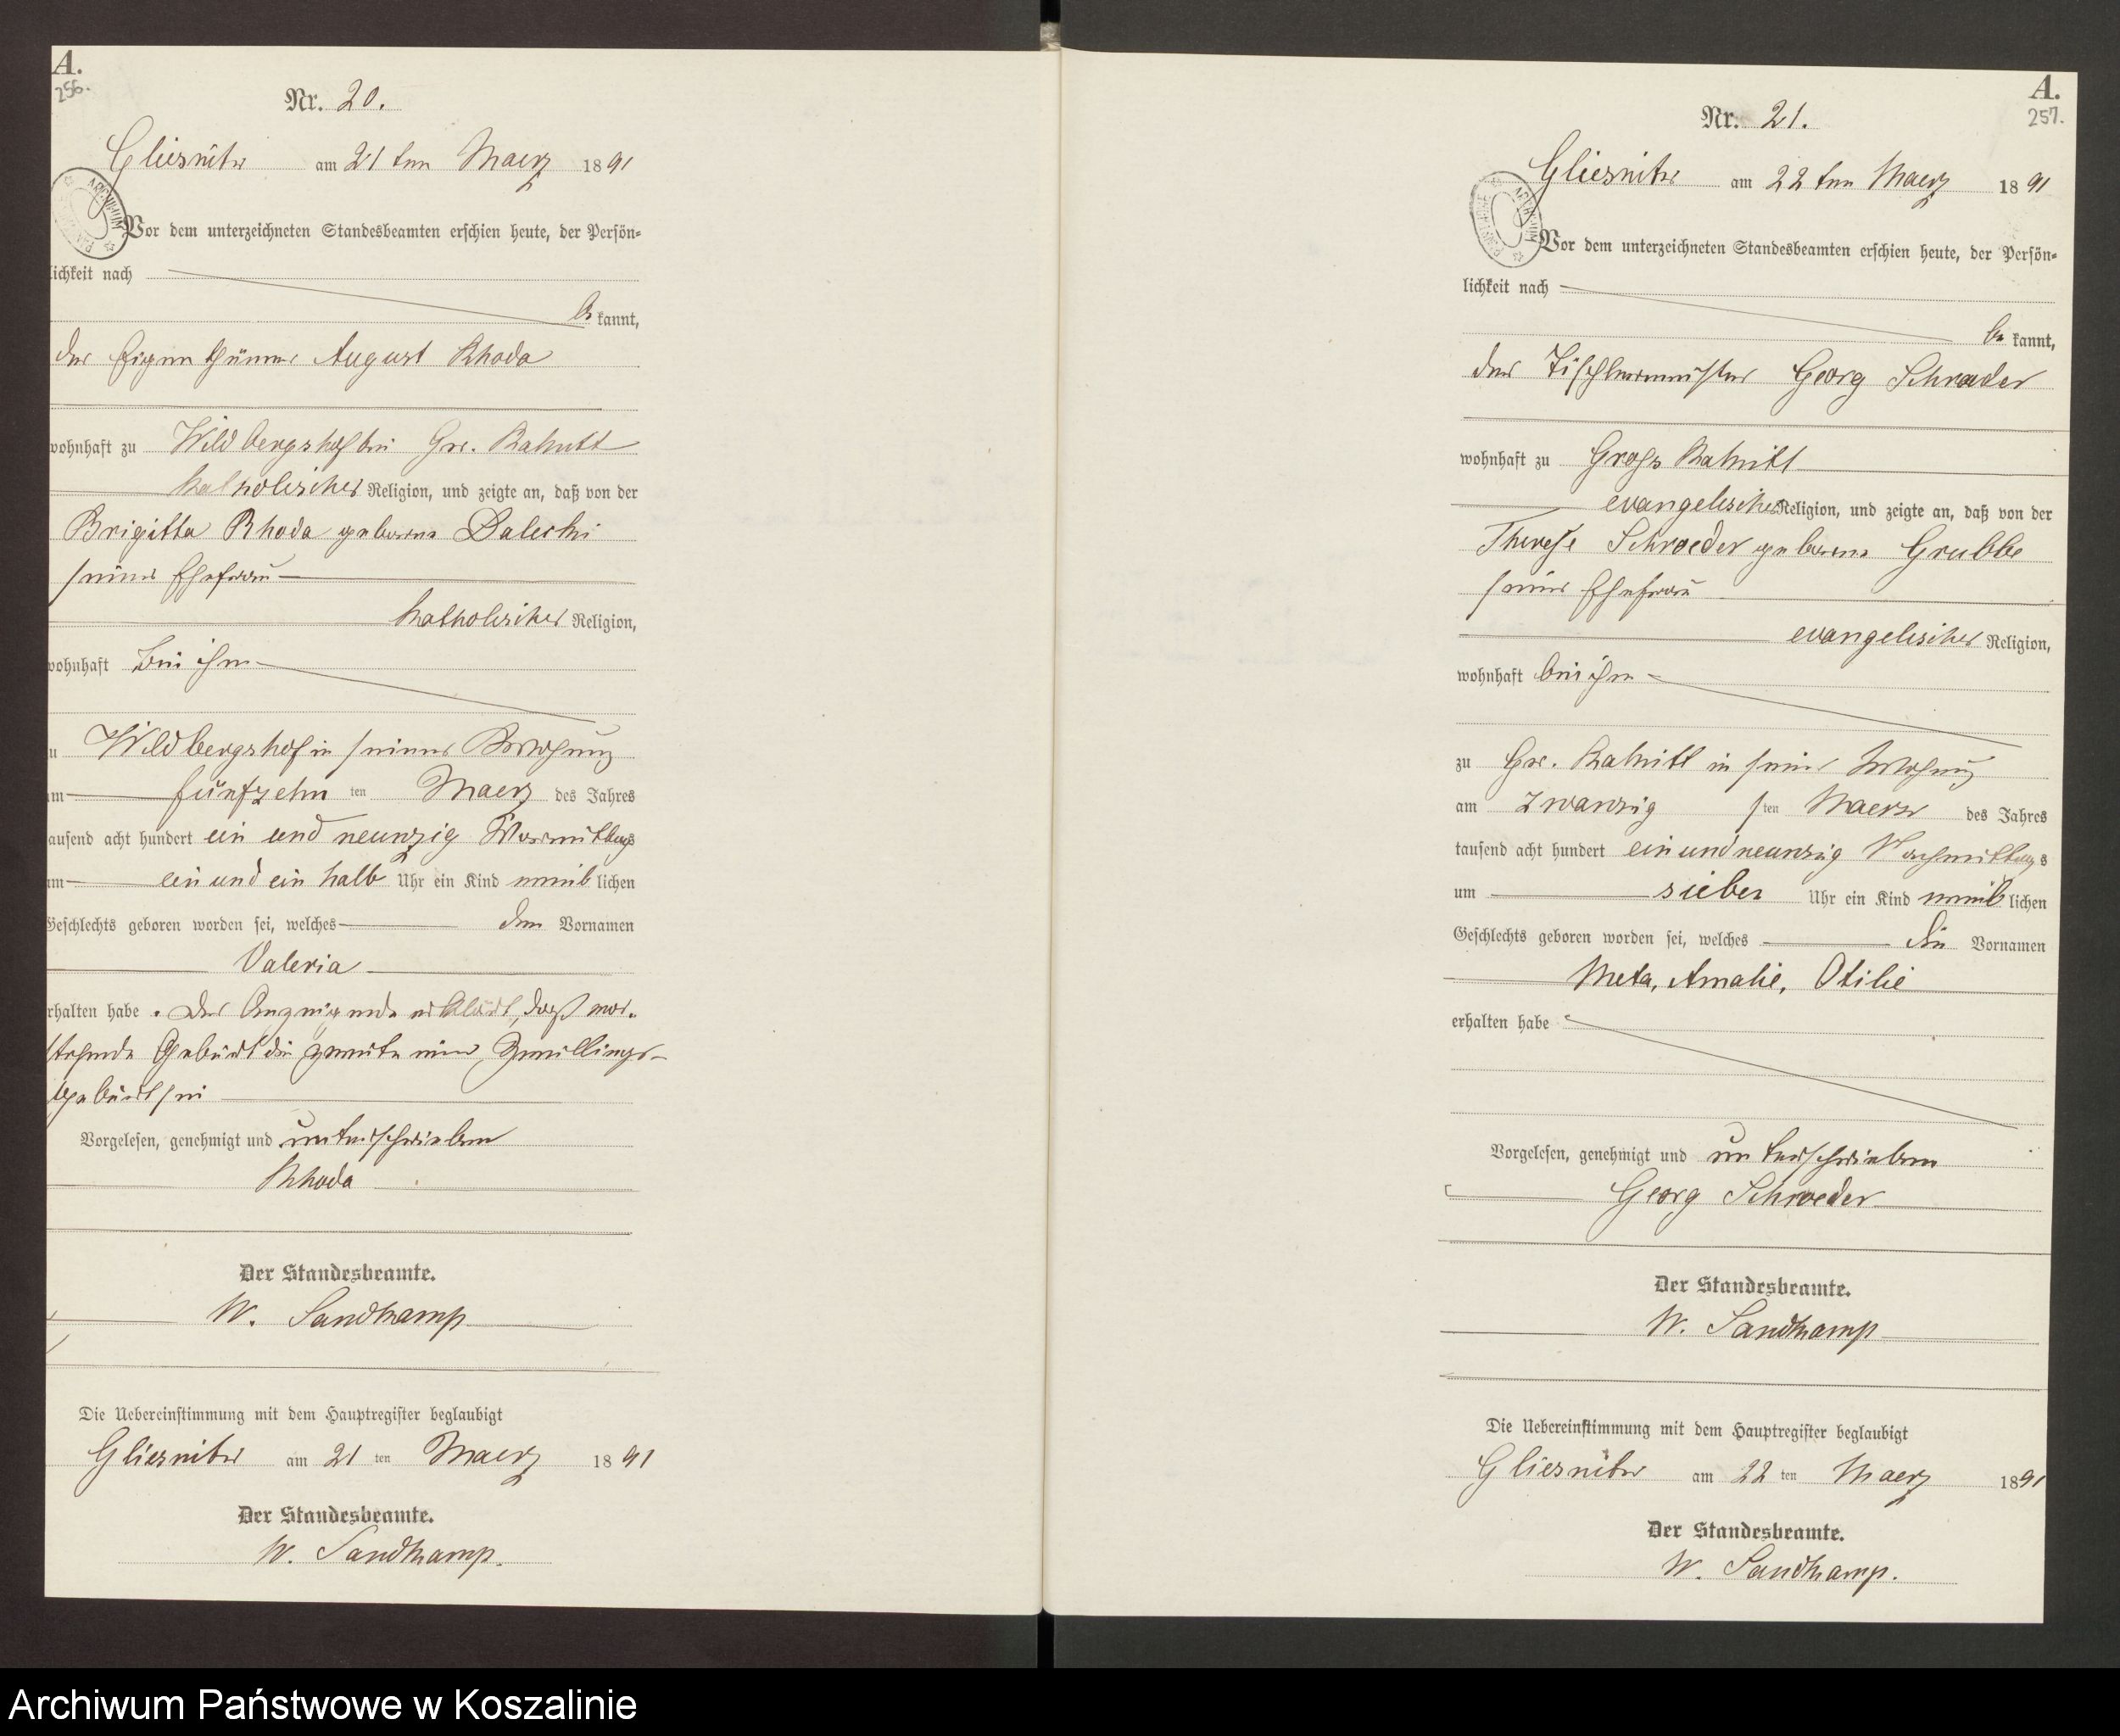 A.
256.
Nr. 20.
Gliesnitz am 21 ten Maerz 1891
Vor dem unterzeichneten Standesbeamten erschien heute, der Persön-
lichkeit nach
be kannt,
der Eigenthümer August Rhoda
wohnhaft zu Wildbergshof bei Gr. Rakitt
katholischer Religion, und zeigte an, daß von der
Brigitta Rhoda geborene
seiner Ehefrau
katholischer Religion,
wohnhaft bei ihm
zu Wildbergshof in seiner
am fünfzehn ten Maerz des Jahres
tausend acht hundert ein und neunzig Vormittags
um ein und ein halb Uhr ein Kind weiblichen
Geschlechts geboren worden sei, welches den Vornamen
Valeria
erhalten habe. Der Anzeigende erklärt, daß vor-
stehende Geburt die zweite einer Zwillings-
geburt sei
Vorgelesen, genehmigt und unterschrieben
Rhoda
Der Standesbeamte.
W. Sandkamp
Die Uebereinstimmung mit dem Hauptregister beglaubigt
Gliesnitz am 21 ten Maerz 1891
Der Standesbeamte.
W. Sandkamp.
A.
257.
Nr. 21.
Gliesnitz am 22 ten Maerz 1891
Vor dem unterzeichneten Standesbeamten erschien heute, der Persön-
lichkeit nach
be kannt,
der Tischlermeister Georg Schroeder
wohnhaft zu Gross Rakitt
evangelischer Religion, und zeigte an, daß von der
Therese Schroeder geborene Grubbe
seiner Ehefrau
evangelischer Religion,
wohnhaft bei ihm
zu Gr. Rakitt in seiner Wohnung
am zwanzig sten Maerz des Jahres
tausend acht hundert ein und neunzig Nachmittags
um sieben Uhr ein Kind weiblichen
Geschlechts geboren worden sei, welches die Vornamen
Meta, Amalie, Otilie
erhalten habe
Vorgelesen, genehmigt und unterschrieben
Georg Schroeder
Der Standesbeamte.
W. Sandkamp
Die Uebereinstimmung mit dem Hauptregister beglaubigt
Gliesnitz am 22 ten Maerz 1891
Der Standesbeamte.
W. Sandkamp.
Archiwum Państwowe w Koszalinie